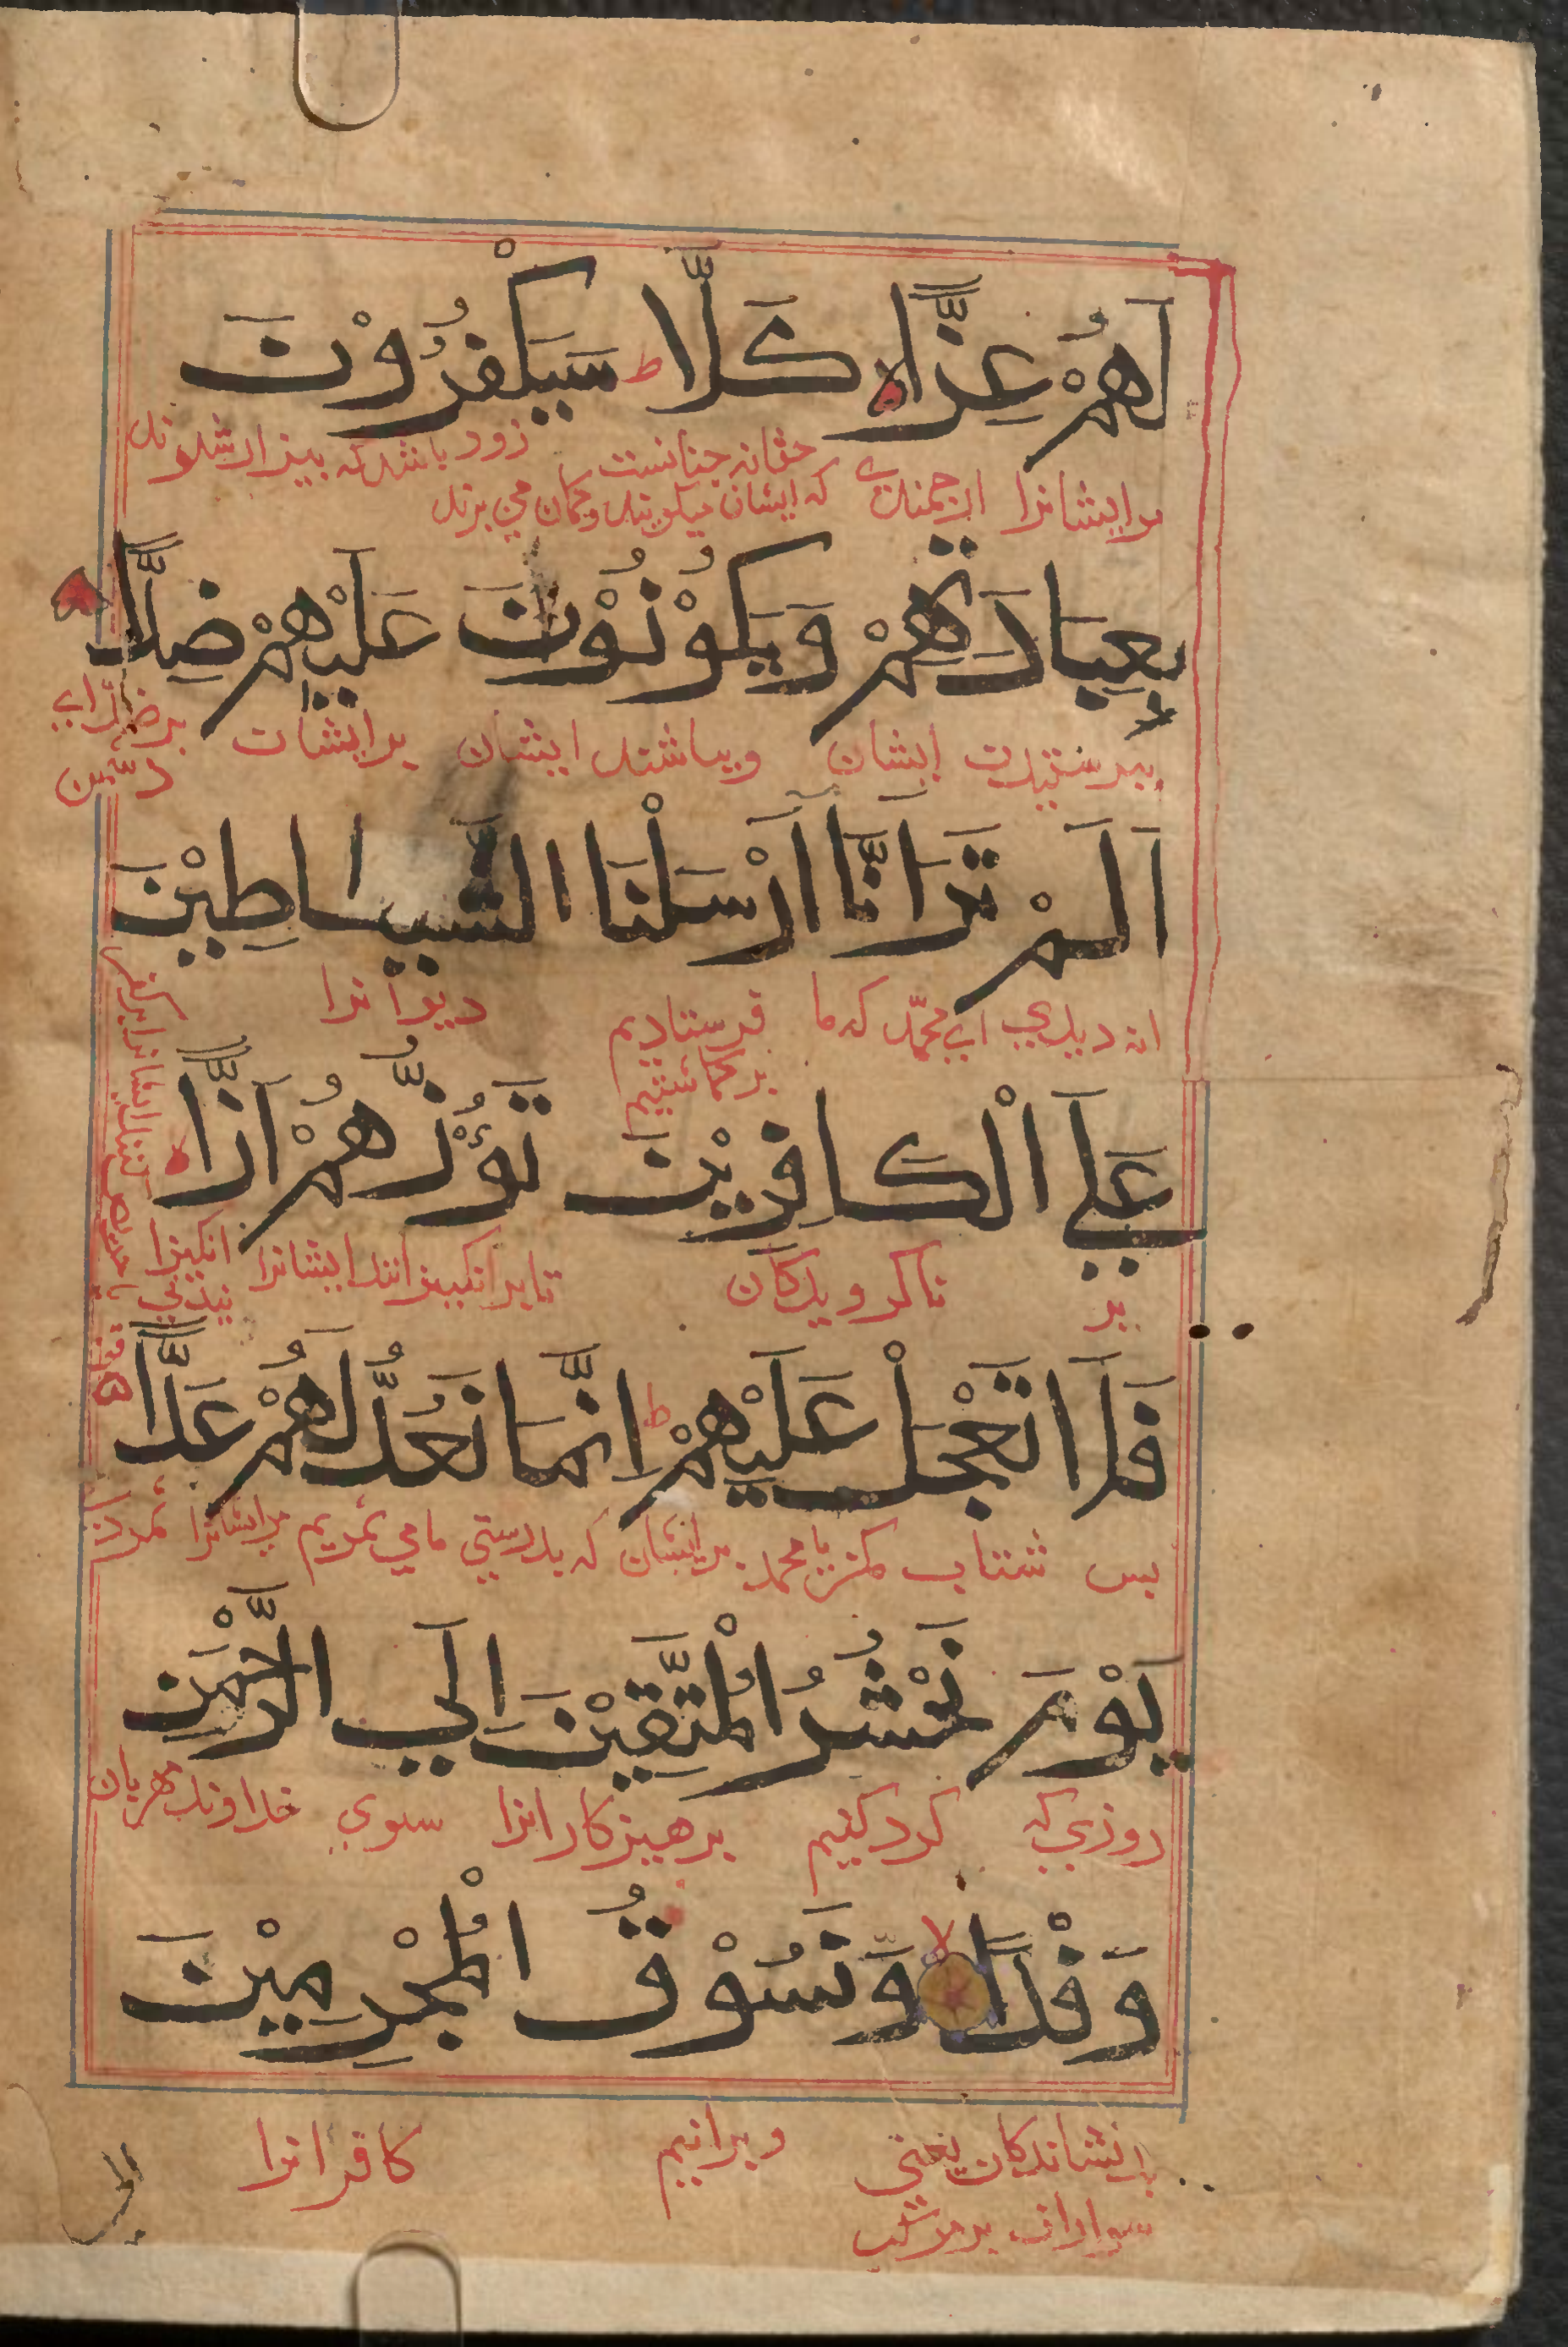 لَهُمْ عِزًّا لا كَلَّا ط سَيَكْفُرُوْنَ
زود باشد که بیزار شوند
مرایشانرا ارجمندی حقانه چنانست
که ایشان میگویند و گمان می برند
بِعِبَادَتِهِمْ وَيَكُوْنُوْنَ عَلَيْهِمْ ضِدًّا
بپرستیدن ایشان و بباشند ایشان برایشان
اَلَمْ تَرَ اَنَّا اَرْسَلْنَا الشَّيَاطِيْنَ
انه دیدی ای محمّد که ما فرستادیم دیوانرا
برگماشتیم
عَلَي الْكَافِرِيْنَ تَؤُزُّهُمْ اَزًّا
بر ناگرویدگان تا برانگیزانند ایشانرا انگیزا
نیدنی
فَلَا تَعْجَلْ عَلَيْهِمْ ط اِنَّمَا نَعُدُّ لَهُمْ عَدًّا
پس شتاب مکن یا محمد برایشان که بدرستی ما می شمریم مرایشانرا شمردن
يَوْمَ نَحْشُرُ الْمُتَّقِيْنَ اِلَي الرَّحْمٰنِ
روزی که گرد کنیم پرهیزکارانرا سوی خداوند مهربان
وَفْدًا لا وَّنَسُوْقُ الْمُجْرِمِيْنَ
یعنی و برانیم کافرانرا
سواران بر مرکب
الی